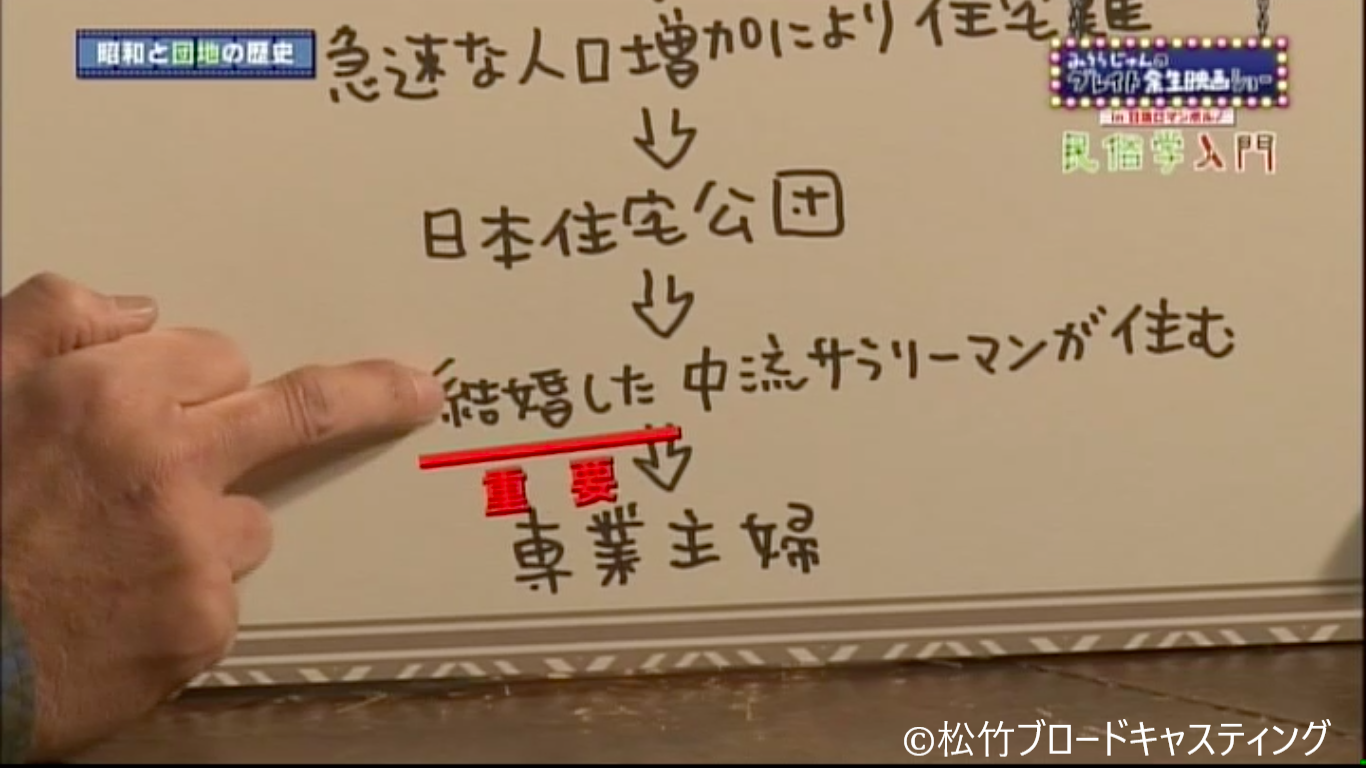 昭和と団地の歴史
急速な人口増加により住宅難
みうらじゅんの
グレイト余生映画ショー
in 日活ロマンポルノ
民俗学入門
日本住宅公団
結婚した中流サラリーマンが住む
重要
専業主婦
©松竹ブロードキャスティング